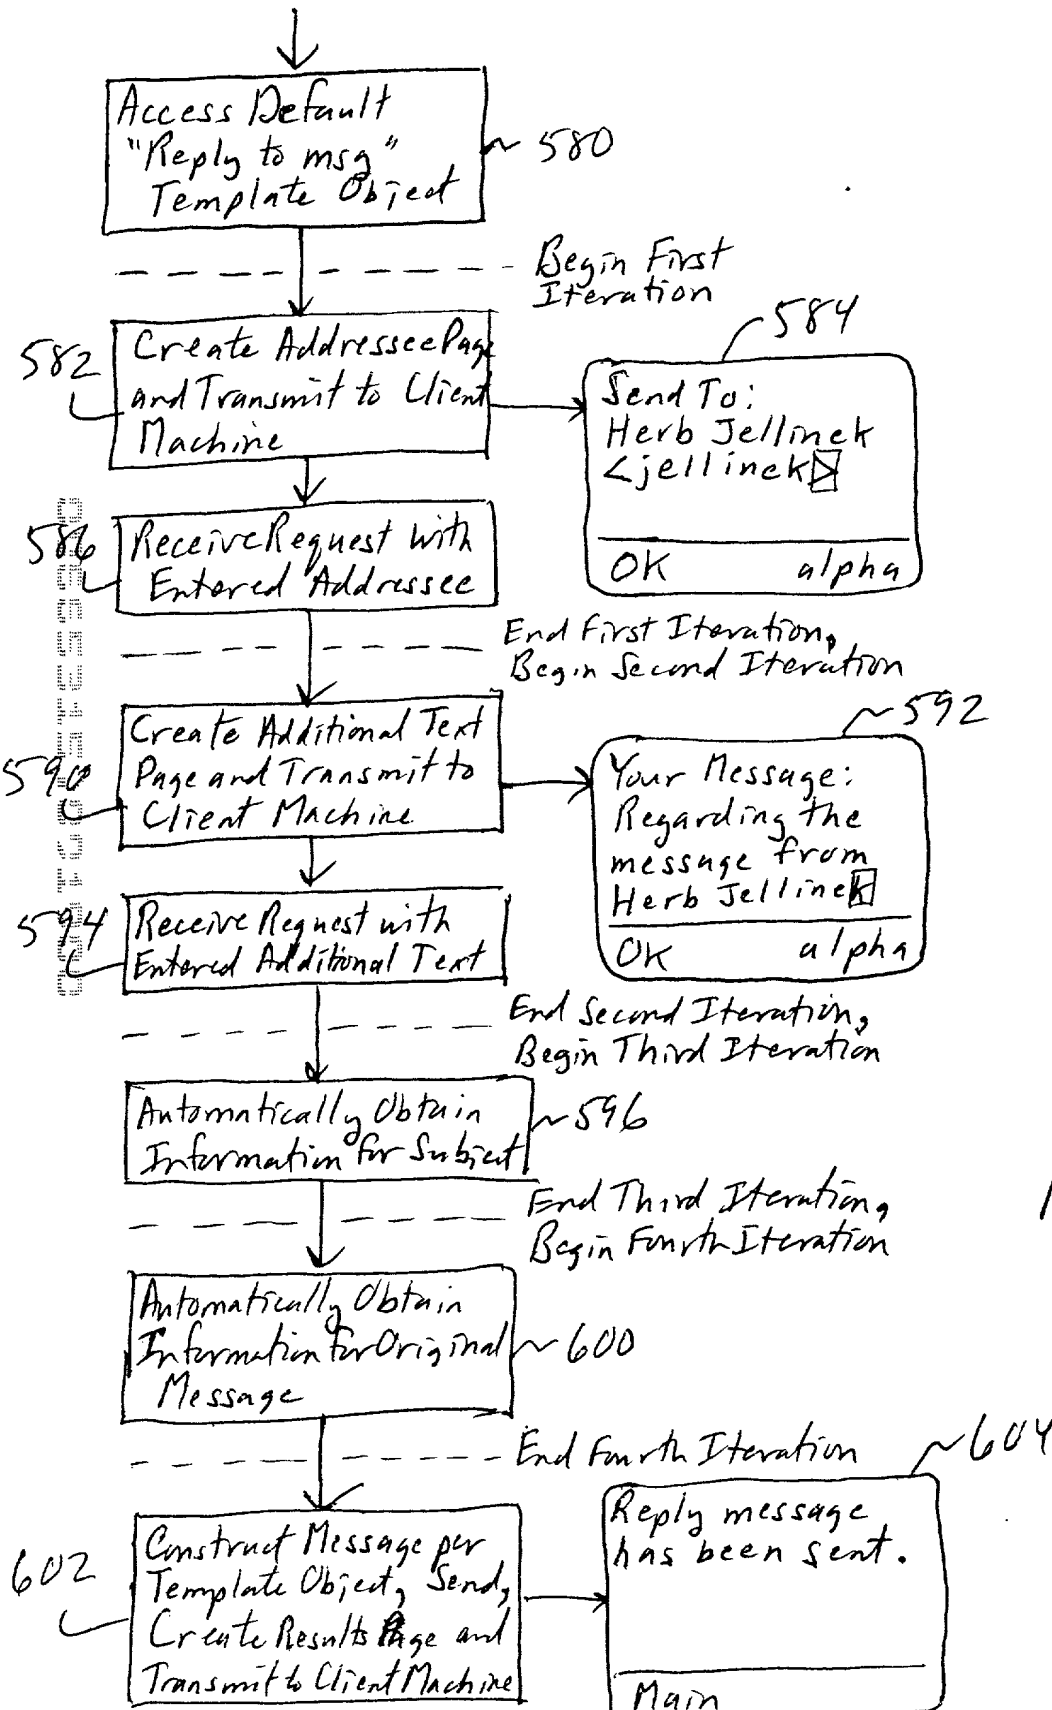 Access Default
"Reply to msg"
Template Object
~580
Begin First
Iteration
582
Create Addressee Page
and Transmit to Client
Machine
584
Send To:
Herb Jellinek
<jellinek>
OK alpha
586
Receive Request with
Entered Addressee
End First Iteration,
Begin Second Iteration
590
Create Additional Text
Page and Transmit to
Client Machine
~592
Your Message:
Regarding the
message from
Herb Jellinek
OK alpha
594
Receive Request with
Entered Additional Text
End Second Iteration,
Begin Third Iteration
Automatically Obtain
Information for Subject
~596
End Third Iteration,
Begin Fourth Iteration
Automatically Obtain
Information for Original
Message
~600
End Fourth Iteration
602
Construct Message per
Template Object, Send,
Create Results Page and
Transmit to Client Machine
~604
Reply message
has been sent.
Main